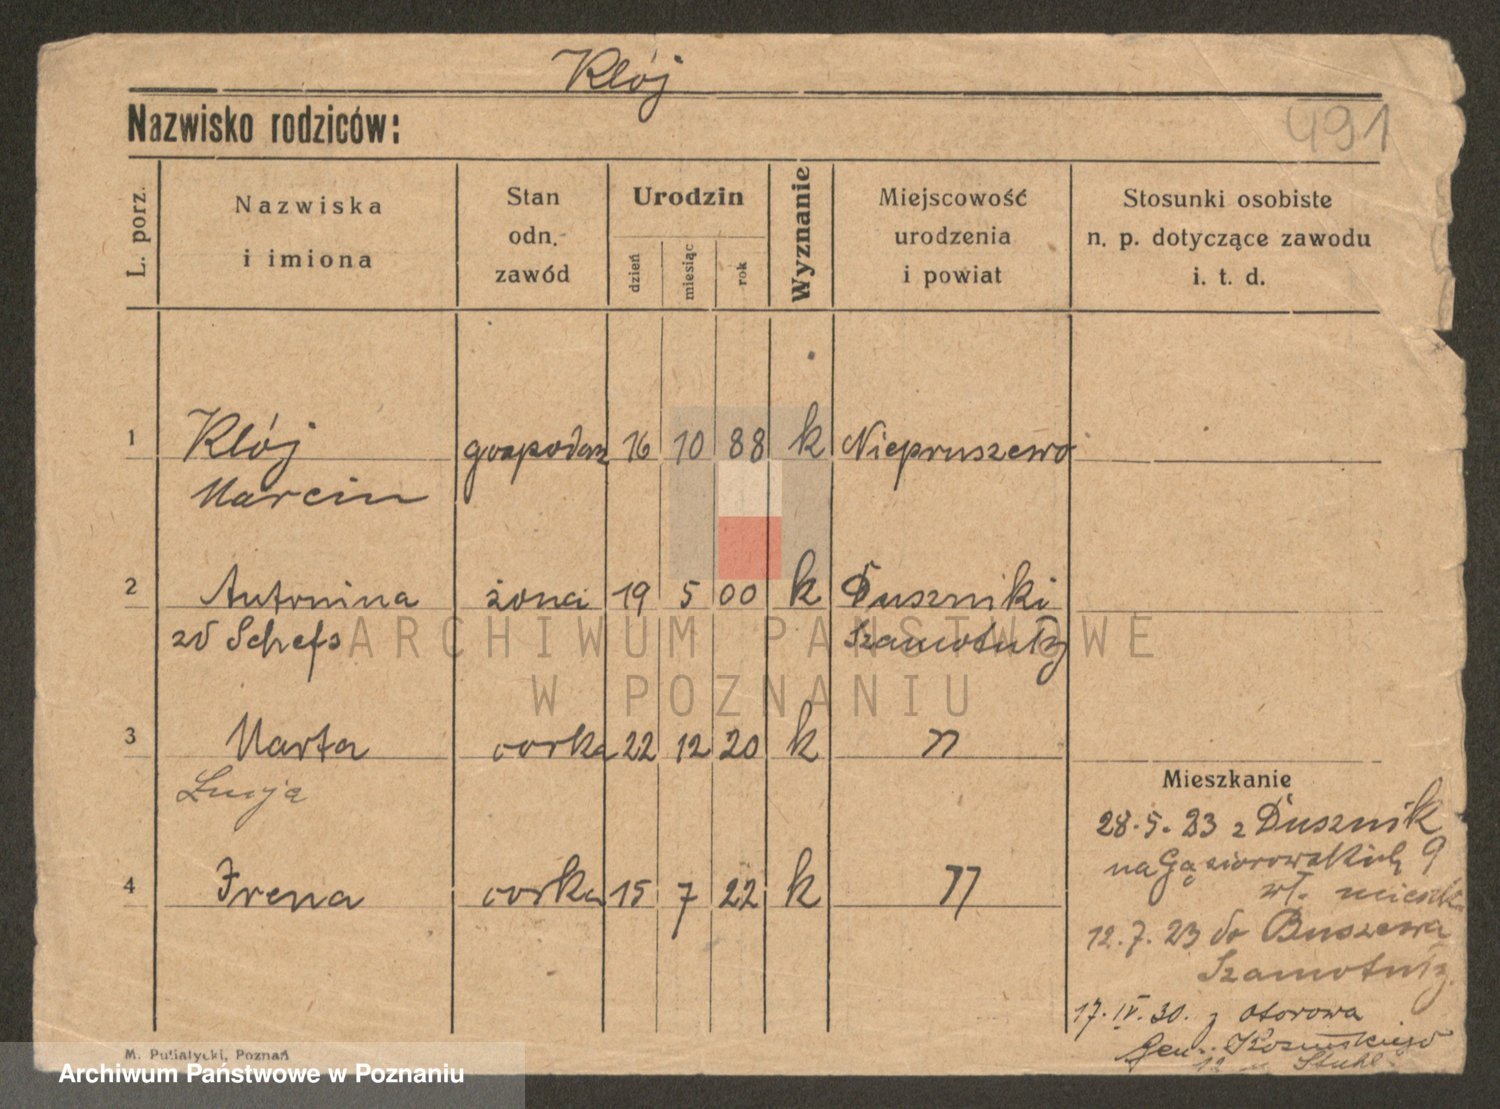 Kłój
Nazwisko rodziców:
491
L. porz.
Nazwiska
i imiona
Stan
odn.
zawód
Urodzin
dzień
miesiąc
rok
Wyznanie
Miejscowość
urodzenia
i powiat
Stosunki osobiste
n. p. dotyczące zawodu
i. t. d.
1 Kłój gospodarz 16 10 88 k Niepruszewo
Marcin
2 Antonina żona 19 5 00 k Duszniki
zd Schefs Szamotuły
ARCHIWUM PAŃSTWOWE
W POZNANIU
3 Marta corka 22 12 20 k "
Łucja
4 Irena corka 15 7 22 k "
Mieszkanie
28.5.23 z Dusznik
na Gąsiorowskich 9
wł.
12.7.23 do Buszewa
Szamotuły
17.IV.30. z Otorowa
Gen. Kosińskiego
12
M. Putiatycki, Poznań
Archiwum Państwowe w Poznaniu